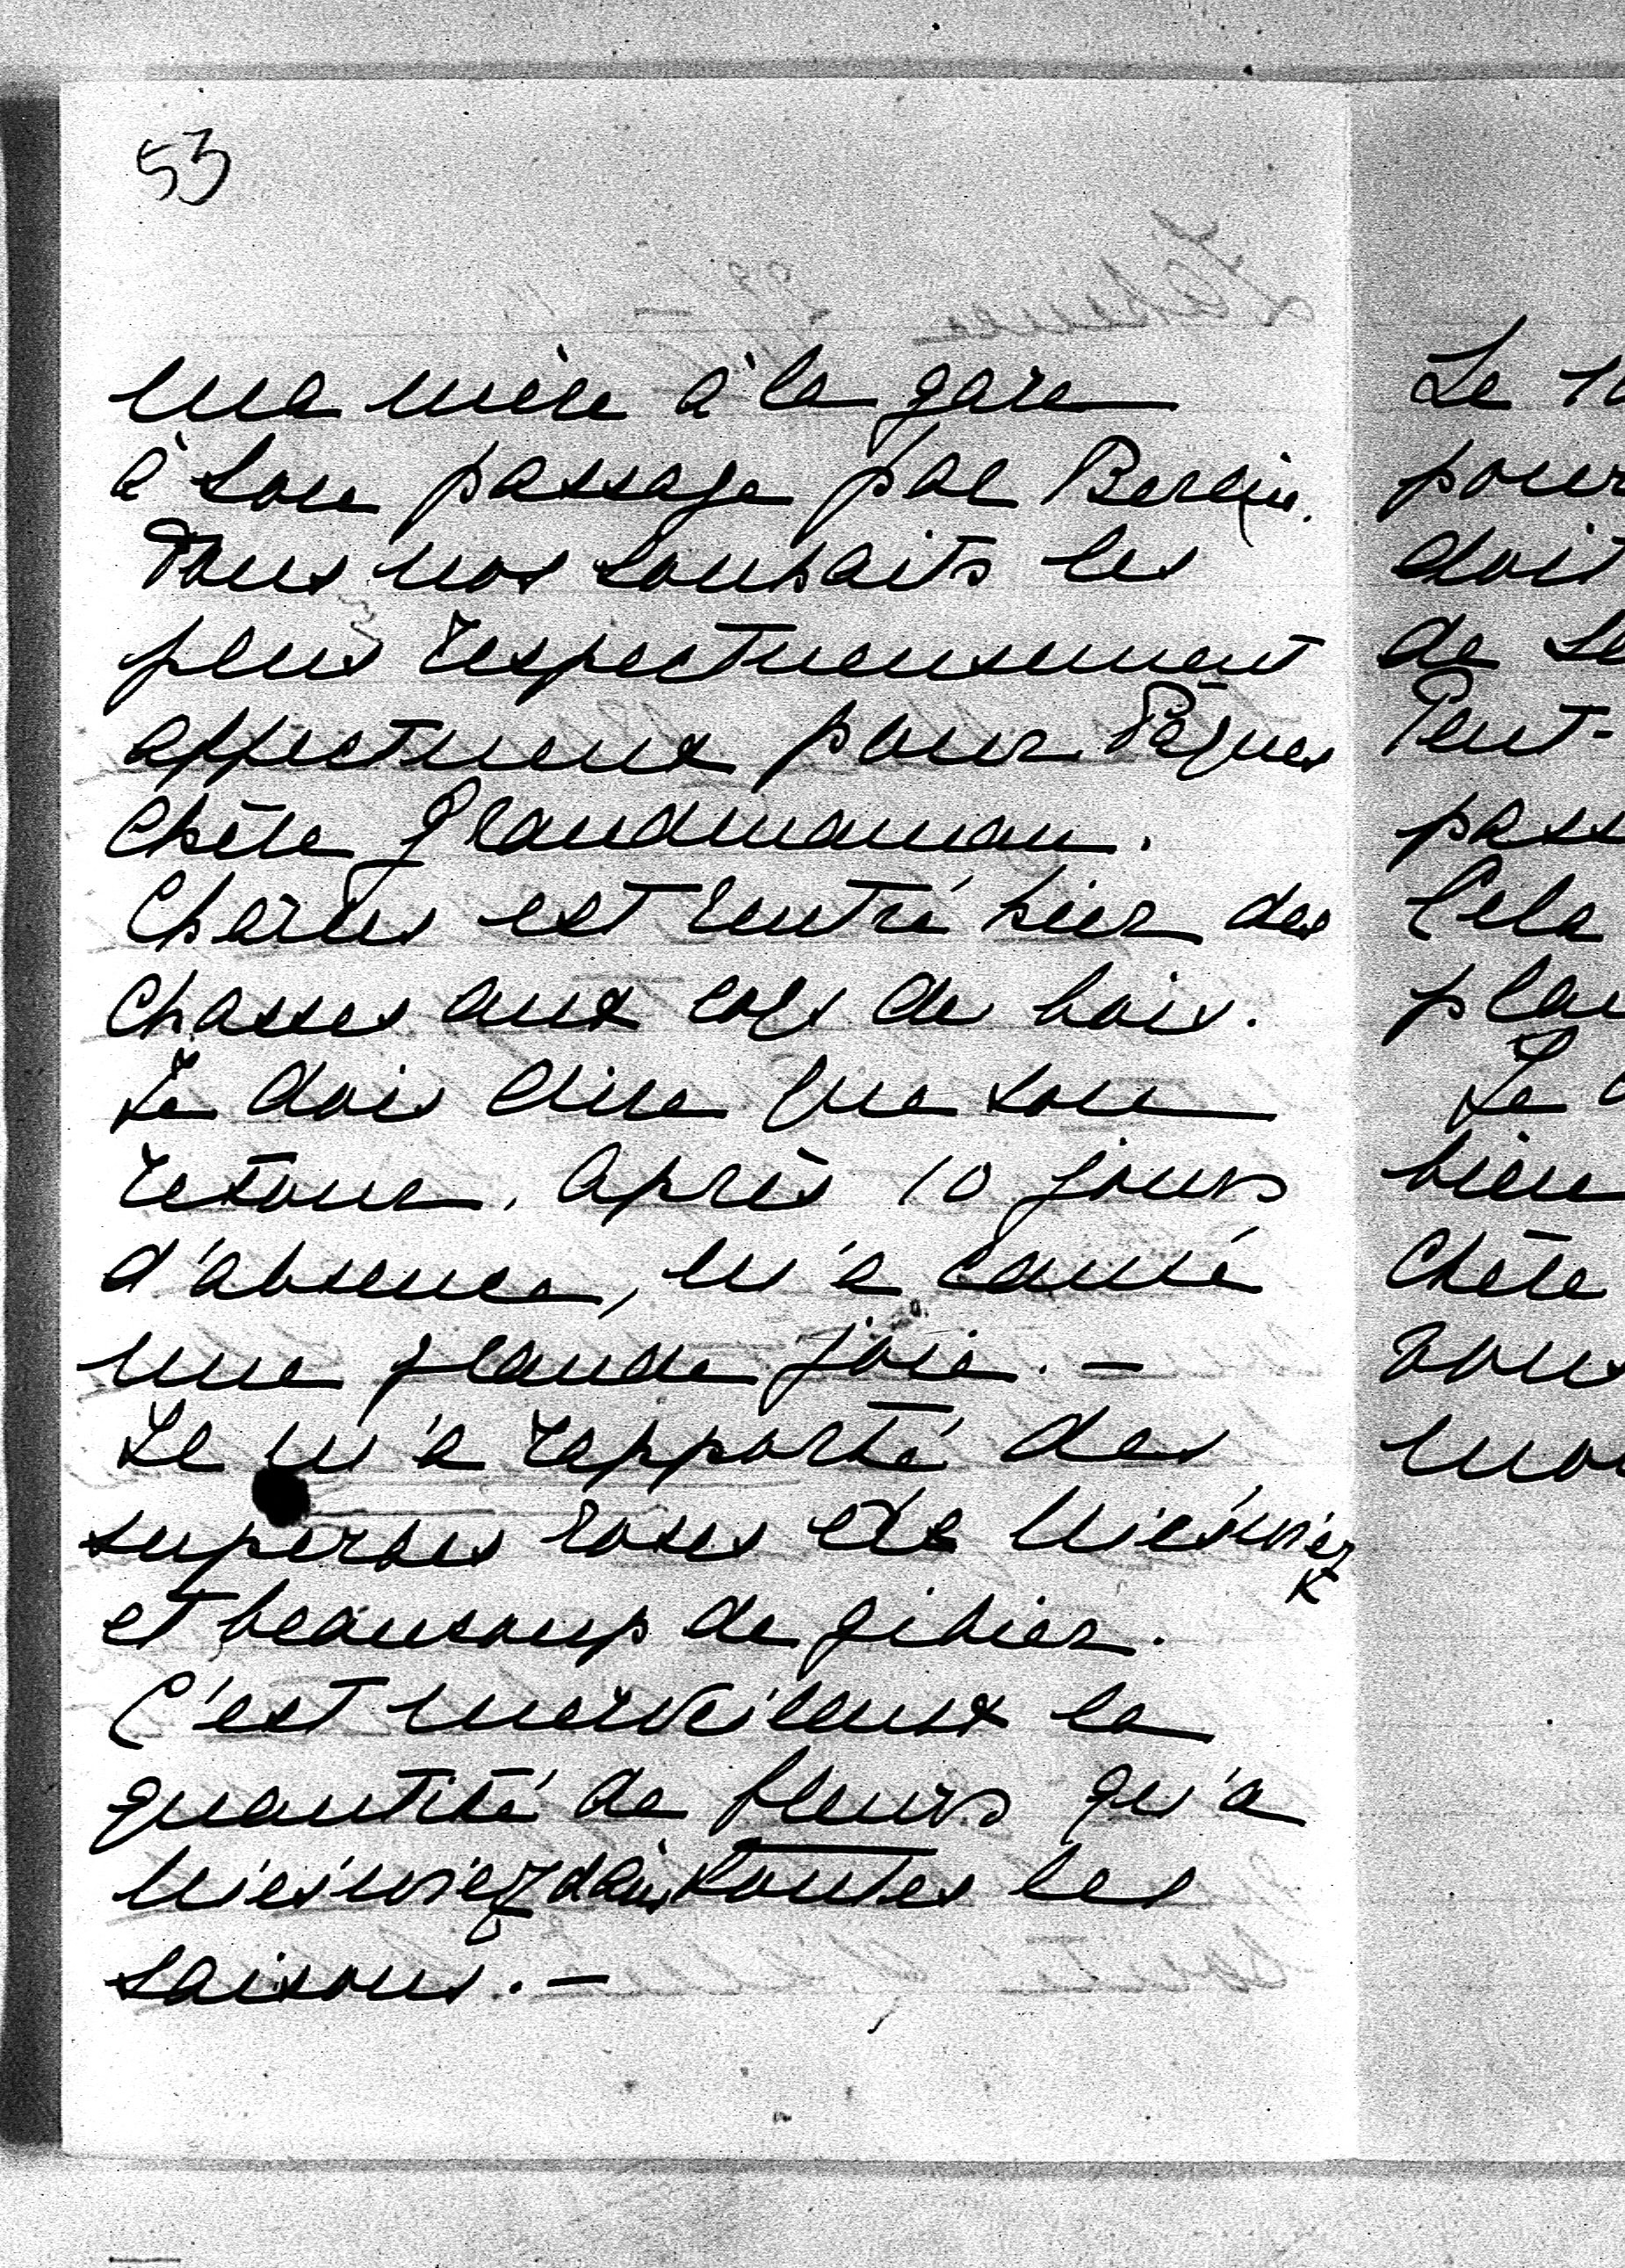 53
ma mère à la gare
à son passage par Berlin.
Tous nos souhaits les
plus respectueusement
affectueux pour Pâques
Chère Grandmaman.
Charles est rentré hier des
chasses aux coqs de bois.
Je dois dire que son
retour, après 10 jours
d'absence, m'a causé
une grande joie. —
Il m'a rapporté des
superbes roses de Nieświez
et beaucoup de gibier.
C'est merveilleux la
quantité de fleurs qu'a
Nieświez dans toutes les
saisons. —
Le 10
pour
doit
de
Peut-
pass
Cela
plai
Je
bien
Chère
vous